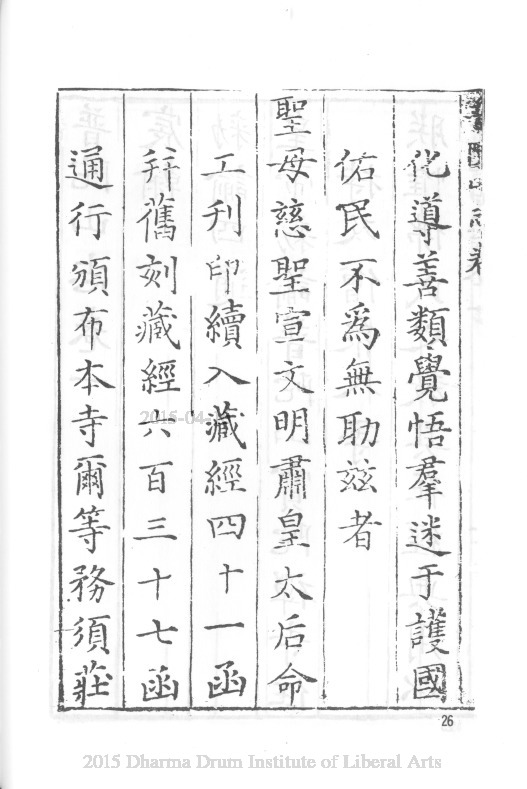 化導善類覺悟羣迷于護國
佑民不爲無助茲者
聖母慈聖宣文明肅皇太后命
工刋印續入藏經四十一函
并舊刻藏經六百三十七函
通行頒布本寺爾等務須莊
26
2015-04-
2015 Dharma Drum Institute of Liberal Arts